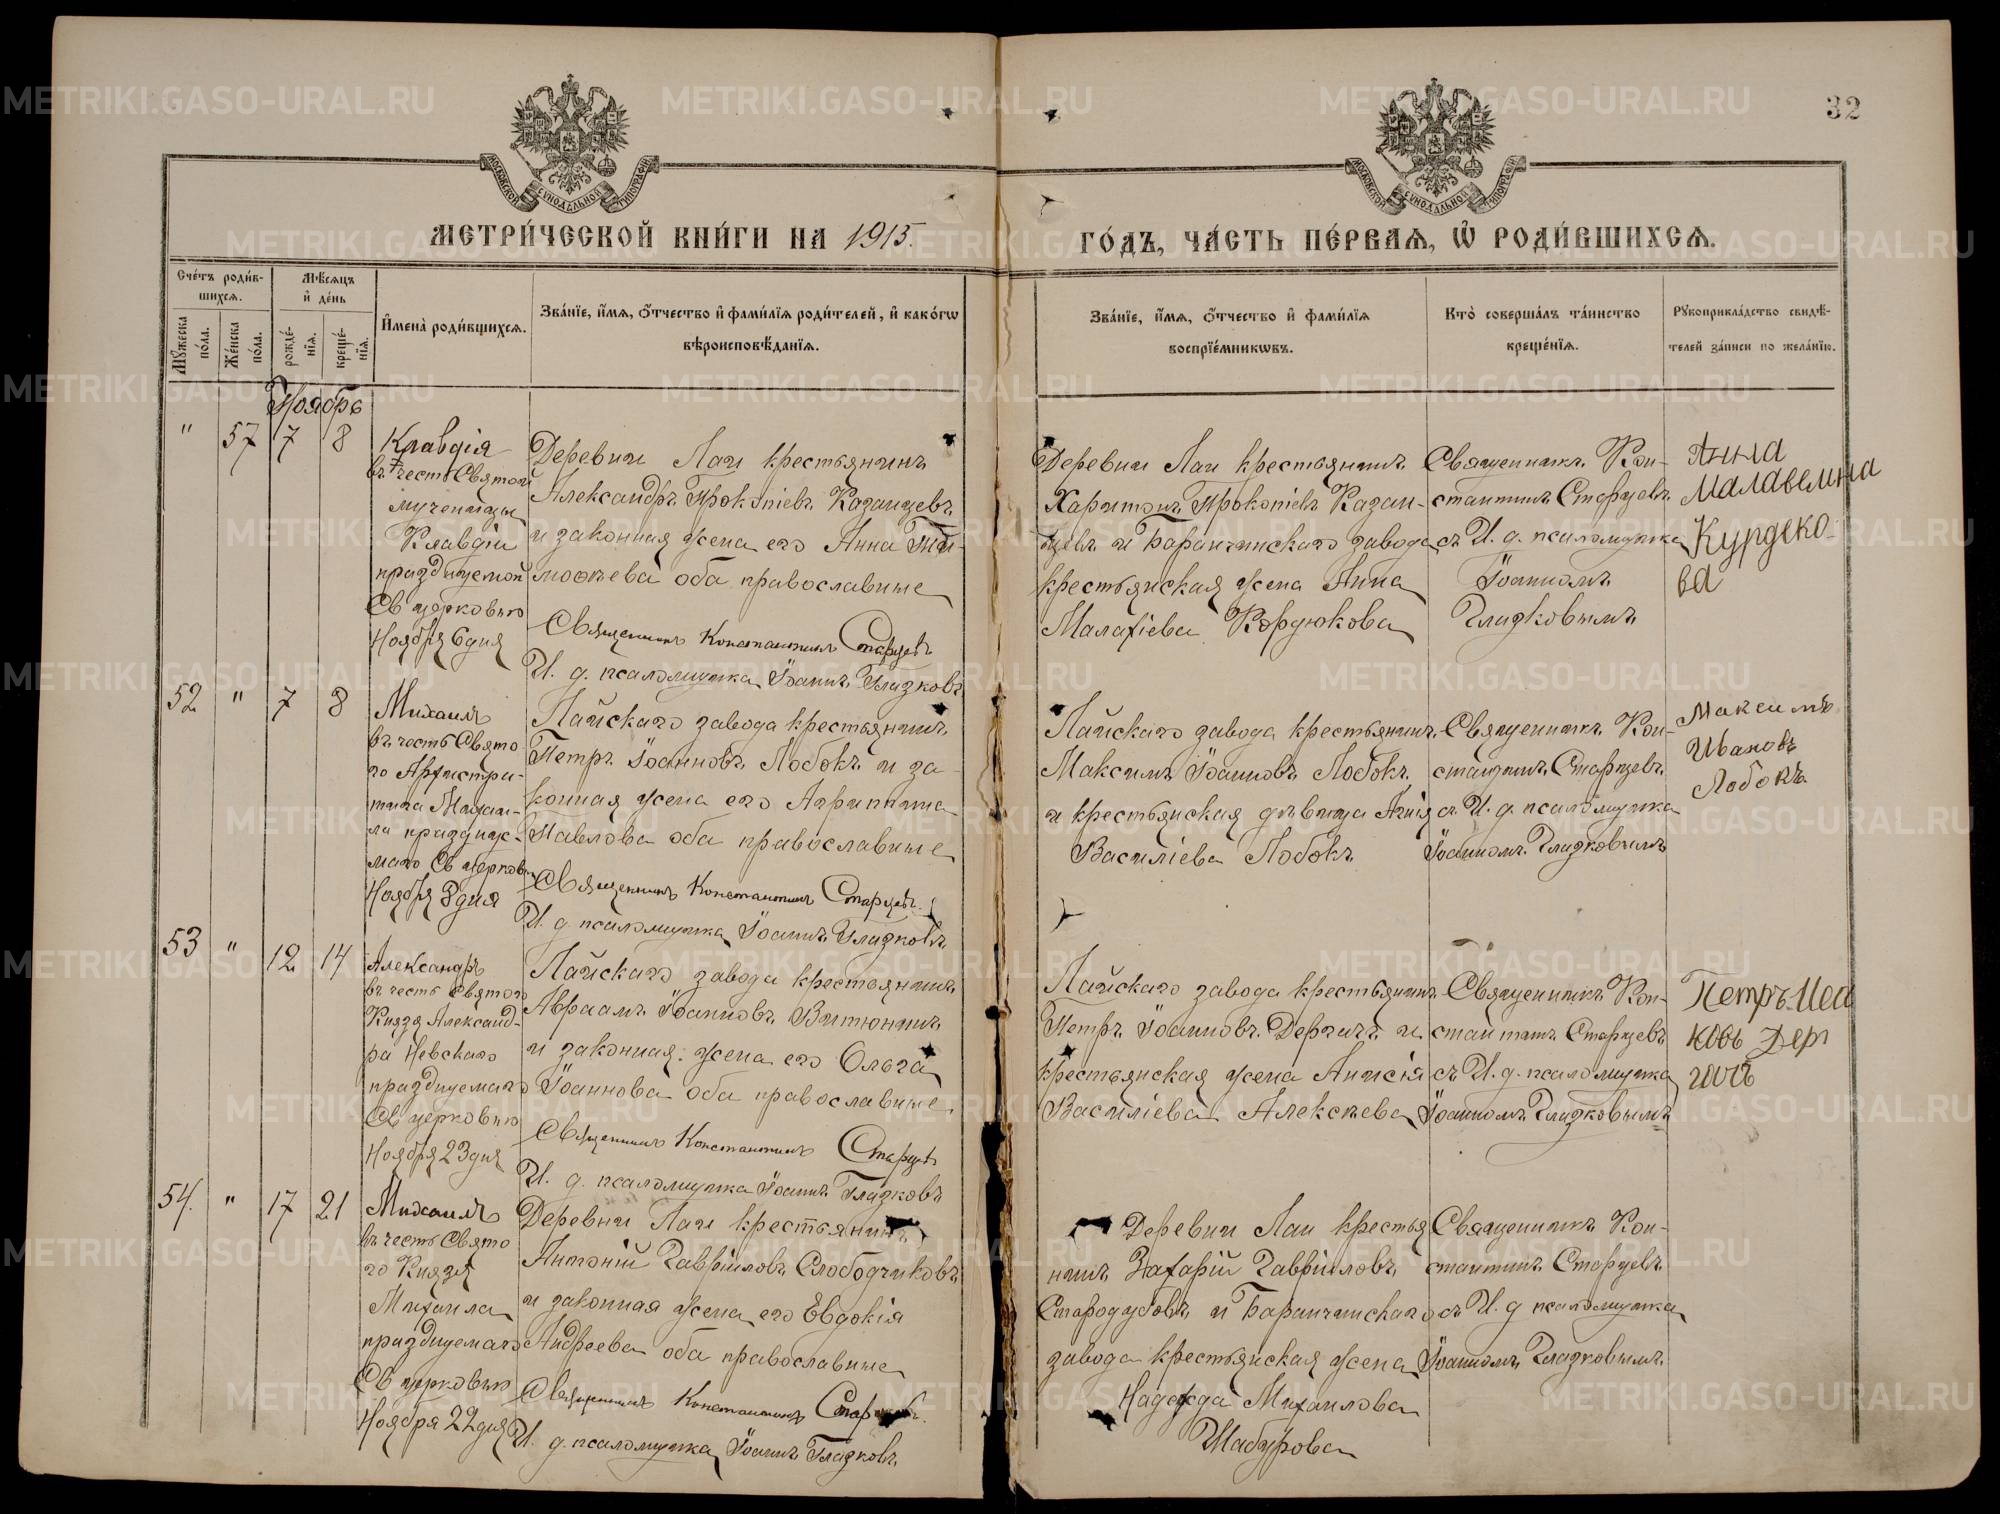 32
МОСКОВСКОЙ СѴНОДАЛЬНОЙ ТИПОГРАФІИ
МОСКОВСКОЙ СѴНОДАЛЬНОЙ ТИПОГРАФІИ
МЕТРИ́ЧЕСКОЙ КНИ́ГИ НА 1915.
ГО́ДЪ, ЧА́СТЬ ПЕ́РВАѦ, Ѡ҆ РОДИ́ВШИХСѦ.
Сче́тъ роди́в-
шихсѧ.
Мꙋ́жеска по́ла.
Же́нска по́ла.
Мѣ́сѧцъ
и҆ де́нь
рожде́-
нїѧ.
креще́-
нїѧ.
И҆мена̀ роди́вшихсѧ.
Зва́нїе, и҆́мѧ, ѻ҆́тчество и҆ фами́лїѧ роди́телей, и҆ како́гѡ
вѣроисповѣ́данїѧ.
Зва́нїе, и҆́мѧ, ѻ҆́тчество и҆ фами́лїѧ
воспрїе́мникѡвъ.
Кто̀ соверша́лъ та́инство
креще́нїѧ.
Рꙋкоприкла́дство свидѣ́-
телей за́писи по жела́нїю.
Ноябрь
" 57 7 8
Клавдія
въ честь Святой
мученицы
Клавдіи
празднуемой
Св церковью
Ноября 6 дня
Деревни Лаи крестьянинъ
Александръ Прокопіевъ Казанцевъ
и законная жена его Анна Ти-
моѳеева оба православные
Священникъ Константинъ Старцевъ
И. д. псаломщика Іоаннъ Гладковъ
Деревни Лаи крестьянинъ
Харитонъ Прокопіевъ Казан-
цевъ и Баранчинскаго завода
крестьянская жена Анна
Малахіева Кордюкова
Священникъ Кон-
стантинъ Старцевъ
съ И. д. псаломщика
Іоанномъ
Гладковымъ
Анна
Малавеина
Курдеко-
ва
52 " 7 8
Михаилъ
въ честь Свято
го Архистра-
тига Михаи-
ла празднуе-
маго Св церков
Ноября 8 дня
Лайскаго завода крестьянинъ
Петръ Іоанновъ Лобокъ и за-
конная жена его Агриппина
Павлова оба православные
Священникъ Константинъ Старцевъ.
И. д. псаломщика Іоаннъ Гладковъ
Лайскаго завода крестьянинъ
Максимъ Іоанновъ Лобокъ
и крестьянская дѣвица Агнія
Василіева Лобокъ
Священникъ Кон-
стантинъ Старцевъ
съ И. д. псаломщика
Іоанномъ Гладковымъ
Максимъ
Ивановъ
Лобокъ
53 " 12 14
Александръ
въ честь Святого
Князя Александ-
ра Невскаго
празднуемаго
Св церковью
Ноября 23 дня
Лайскаго завода крестьянинъ
Авраамъ Іоанновъ Витюнинъ
и законная жена его Ольга
Іоаннова оба православные.
Священникъ Константинъ Старцевъ
И. д. псаломщика Іоаннъ Гладковъ
Лайскаго завода крестьянинъ
Петръ Іоанновъ Дергачъ и
крестьянская жена Анисія
Василіева Алексѣева
Священникъ Кон-
стантинъ Старцевъ
съ И. д. псаломщика
Іоанномъ Гладковымъ
Петръ Иса
ковъ Дер
гачъ
54. " 17 21
Михаилъ
въ честь Свято
го Князя
Михаила
празднуемаго
Св церковью
Ноября 22 дня
Деревни Лаи крестьянинъ
Антоній Гавріиловъ Слободчиковъ
и законная жена его Евдокія
Андреева оба православные
Священникъ Константинъ
И. д. псаломщика Іоаннъ Гладковъ
Деревни Лаи крестья
нинъ Захарій Гавріиловъ
Стародубовъ и Баранчинскаго
завода крестьянская жена
Надежда Михаилова
Шабурова
Священникъ Кон-
стантинъ Старцевъ
съ И. д псаломщика
Іоанномъ Гладковымъ
METRIKI.GASO-URAL.RU